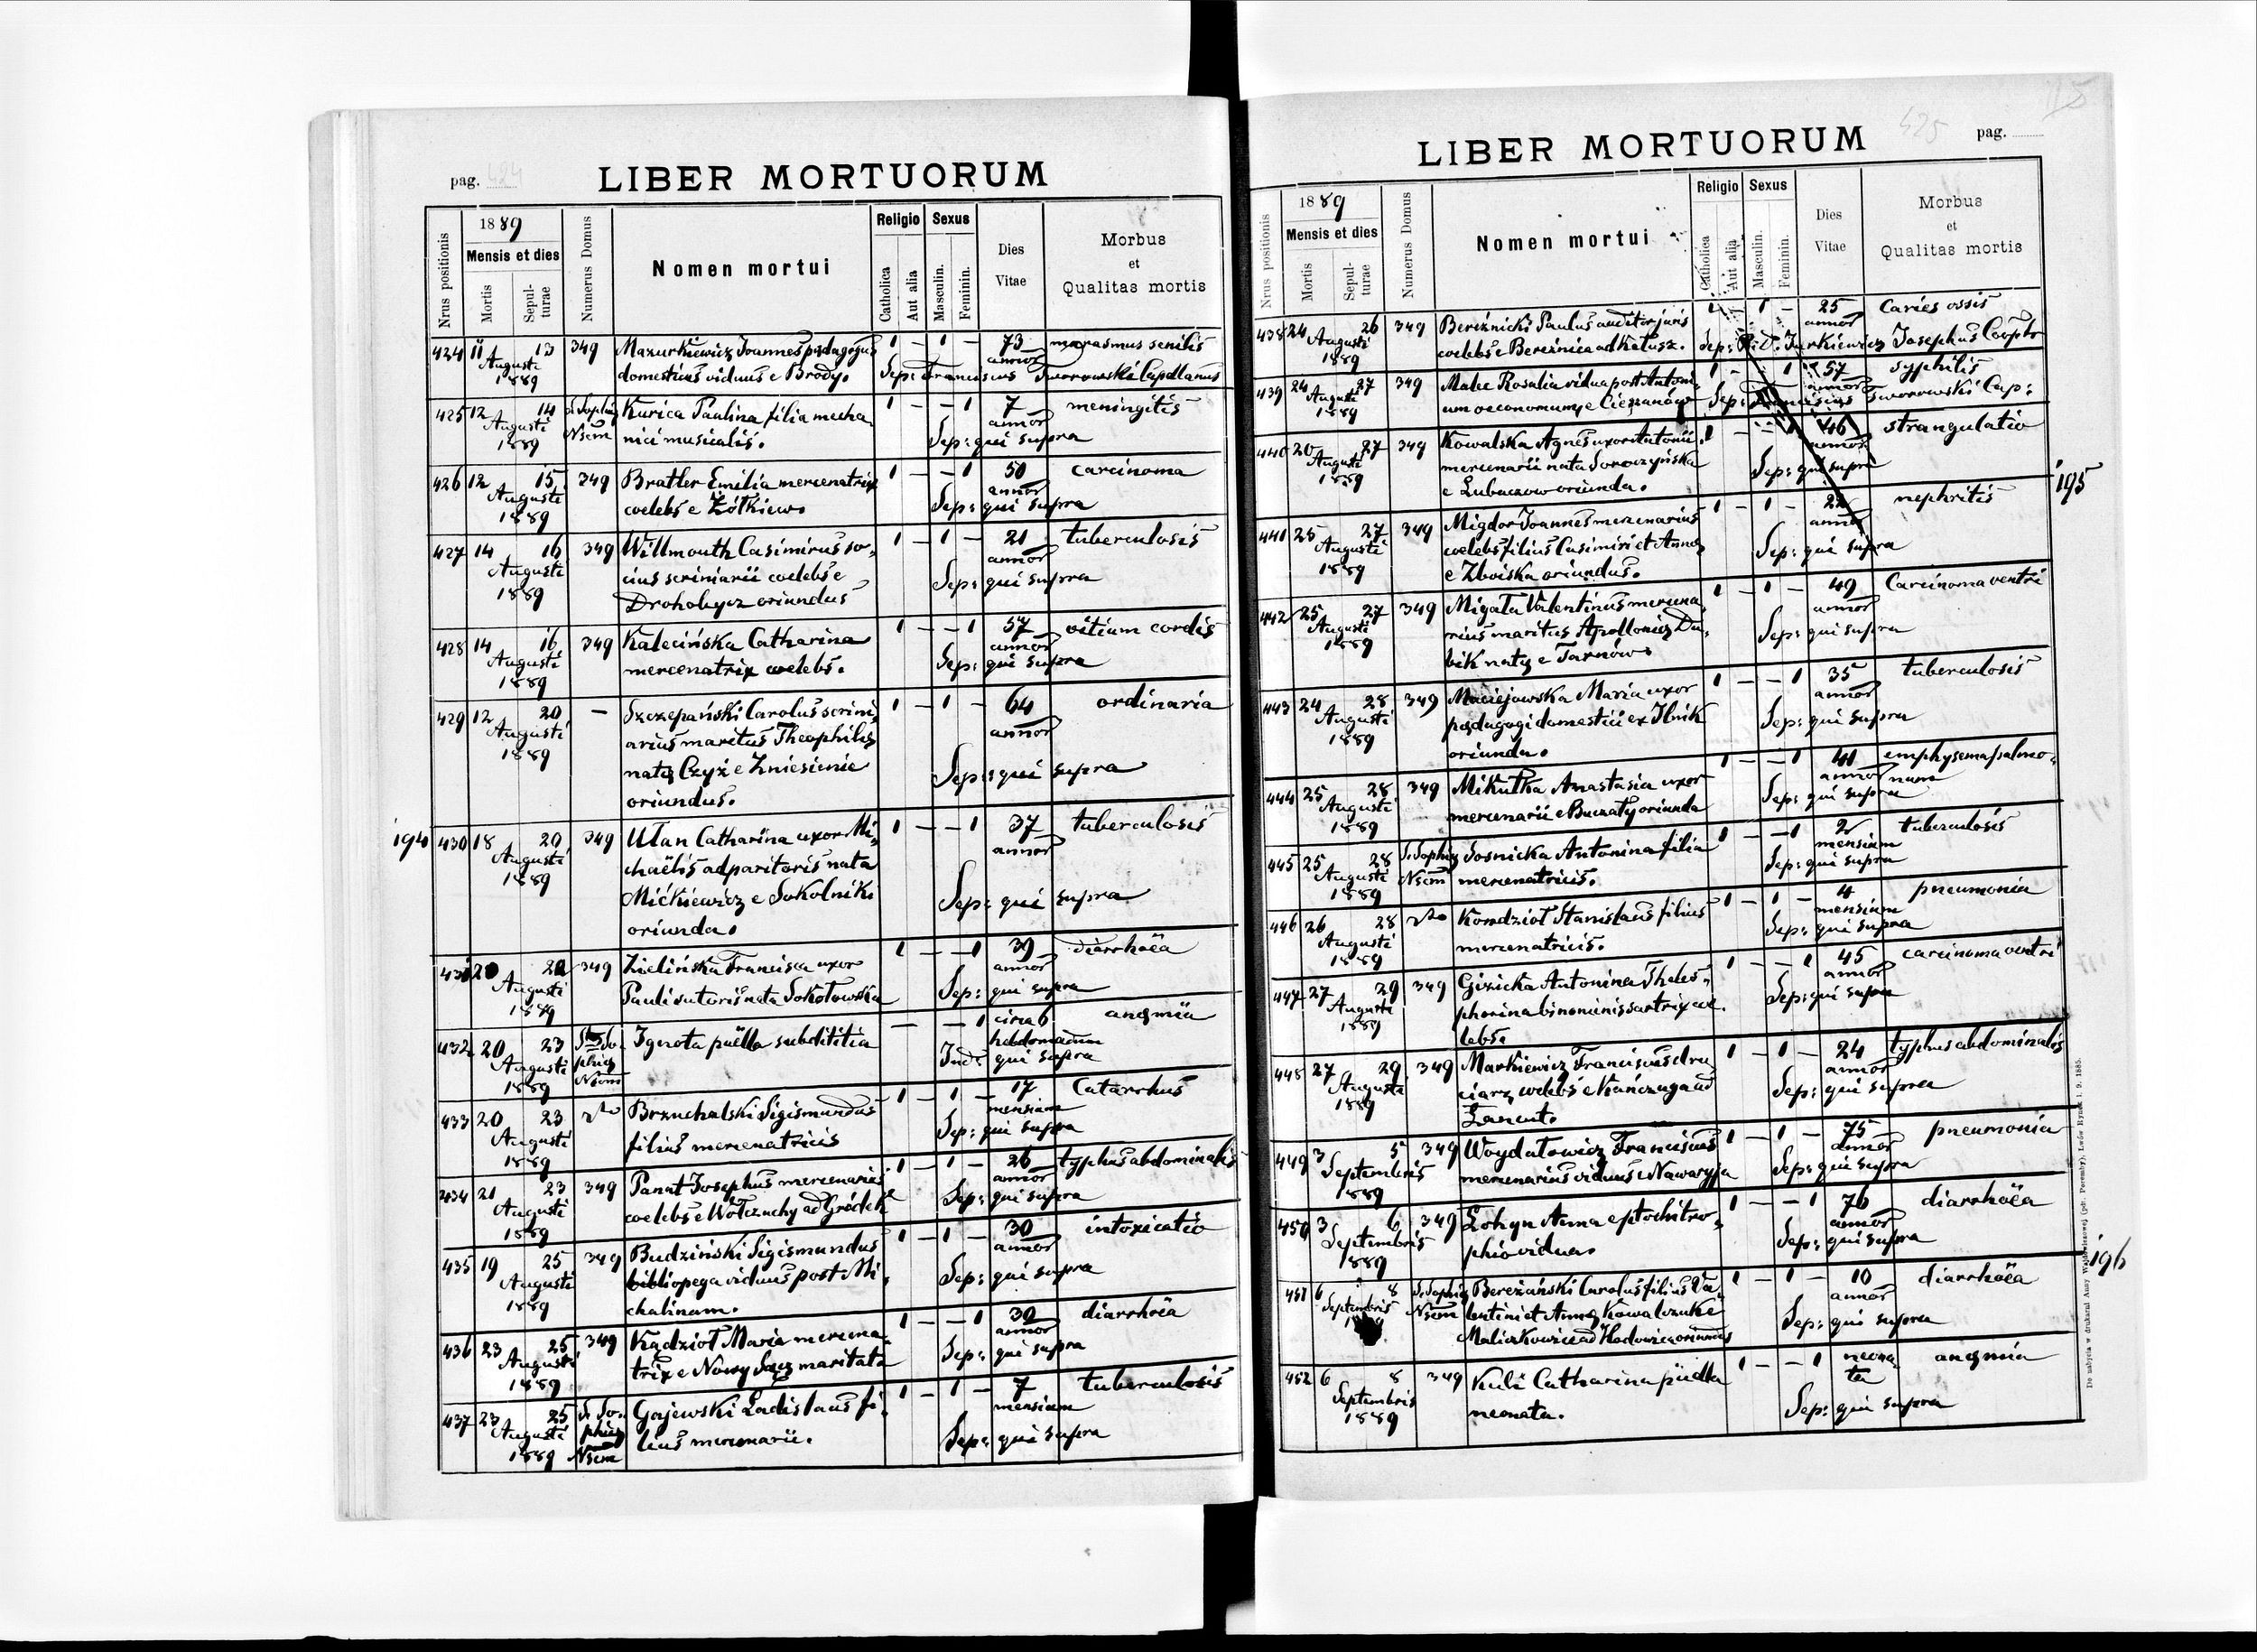 pag. 424
LIBER MORTUORUM
Nrus positionis
1889
Mensis et dies
Mortis
Sepul-
turae
Numerus Domus
Nomen mortui
Religio
Catholica
Aut alia
Sexus
Masculin.
Feminin.
Dies
Vitae
Morbus
et
Qualitas mortis
424 11 13 349 Mazurkiewicz Joannes pædagogus 1 – 1 – 73 marasmus senilis
Augusti domesticus viduus e Brody. annor
1889 Sep: Franciscus Tworowski Capellanus
425 12 14 S. Sophiæ Kurica Paulina filia mecha 1 – – 1 7 meningitis
Augusti Nsem nici musicalis. annor
1889 Sep: qui supra
426 12 15 349 Bratler Emilia mercenatrix 1 – – 1 50 carcinoma
Augusti coelebs e Żółkiew. annor
1889 Sep: qui supra
427 14 16 349 Willmouth Casimirus so- 1 – 1 – 21 tuberculosis
Augusti cius scriniarii coelebs e annor
1889 Drohobycz oriundus Sep: qui supra
428 14 16 349 Kalecińska Catharina 1 – – 1 57 vitium cordis
Augusti mercenatrix coelebs. annor
1889 Sep: qui supra
429 12 20 – Szczepański Carolus scrini- 1 – 1 – 64 ordinaria
Augusti arius maritus Theophilæ annor
1889 natæ Czyż e Zniesienie Sep: qui supra
oriundus.
194 430 18 20 349 Ułan Catharina uxor Mi- 1 – – 1 37 tuberculosis
Augusti chaëlis adparitoris nata annor
1889 Mićkiewicz e Sokolniki Sep: qui supra
oriunda.
431 20 22 349 Zielińska Francisca uxor 1 – – 1 39 diarrhoëa
Augusti Pauli sutoris nata Sokołowska annor
1889 Sep: qui supra
432 20 23 Stæ So- Ignota puella subdititia – – – 1 circa 6 anæmia
Augusti phiæ hebdomadum
1889 Nsem Ind: qui supra
433 20 23 dto Brzuchalski Sigismundus 1 – 1 – 17 Catarrhus
Augusti filius mercenatricis mensium
1889 Sep: qui supra
434 21 23 349 Panat Josephus mercenarius 1 – 1 – 26 typhus abdominalis
Augusti coelebs e Wołczuchy ad Gródek annor
1889 Sep: qui supra
435 19 25 349 Budziński Sigismundus 1 – 1 – 30 intoxicatio
Augusti bibliopega viduus post Mi- annor
1889 chalinam. Sep: qui supra
436 23 25 349 Kądzioł Maria mercena- 1 – – 1 30 diarrhoëa
Augusti trix e Nowy Sącz maritata annor
1889 Sep: qui supra
437 23 25 S. So- Gajewski Ladislaus fi- 1 – 1 – 7 tuberculosis
Augusti phiæ lius mercenarii. mensium
1889 Nsem Sep: qui supra
115
425
LIBER MORTUORUM
pag.
Nrus positionis
1889
Mensis et dies
Mortis
Sepul-
turae
Numerus Domus
Nomen mortui
Religio
Catholica
Aut alia
Sexus
Masculin.
Feminin.
Dies
Vitae
Morbus
et
Qualitas mortis
438 24 26 349 Bereźnicki Paulus auditor juris 1 – 1 – 25 Caries ossis
Augusti coelebs e Bereźnica ad Kałusz. annor
1889 Sep: R. D. Jurkiewicz Josephus Coop.
439 24 27 349 Malec Rosalia vidua post Antoni- 1 – – 1 57 syphilis
Augusti um oeconomum e Cieszanów annor
1889 Sep: Franciscus Tworowski Cap:
440 20 27 349 Kowalska Agnes uxor Antonii 1 – – 1 46 strangulatio
Augusti mercenarii nata Soroczyńska annor
1889 e Lubaczow oriunda. Sep: qui supra
195
441 25 27 349 Migdor Joannes mercenarius 1 – 1 – 22 nephritis
Augusti coelebs filius Casimiri et Annæ annor
1889 e Zboiska oriundus. Sep: qui supra
442 25 27 349 Migała Valentinus mercena 1 – 1 – 49 Carcinoma ventri
Augusti rius maritus Apolloniæ Du- annor
1889 bik natæ e Tarnów. Sep: qui supra
443 24 28 349 Maciejowska Maria uxor 1 – – 1 35 tuberculosis
Augusti pædagogi domestici ex Ilnik annor
1889 oriunda. Sep: qui supra
444 25 28 349 Mikułka Anastasia uxor 1 – – 1 41 emphysema pulmo-
Augusti mercenarii e Buczały oriunda annor num
1889 Sep: qui supra
445 25 28 S. Sophiæ Sosnicka Antonina filia 1 – – 1 2 tuberculosis
Augusti Nsem mercenatricis. mensium
1889 Sep: qui supra
446 26 28 dto Kondzioł Stanislaus filius 1 – 1 – 4 pneumonia
Augusti mercenatricis. mensium
1889 Sep: qui supra
447 27 29 349 Gizicka Antonina Theles- 1 – – 1 45 carcinoma ventri
Augusti phorina binominis sartrix coe- annor
1889 lebs. Sep: qui supra
448 27 29 349 Markiewicz Franciscus dru 1 – 1 – 24 typhus abdominalis
Augusti ciarz coelebs e Kańczuga ad annor
1889 Łancut. Sep: qui supra
449 3 5 349 Woydatowicz Franciscus 1 – 1 – 75 pneumonia
Septembris mercenarius viduus e Nawaryja annor
1889 Sep: qui supra
450 3 6 349 Łohyn Anna e ptochitro- 1 – – 1 76 diarrhoëa
Septembris phio vidua. annor
1889 Sep: qui supra
196
451 6 8 S. Sophiæ Bereżański Carolus filius Va- 1 – 1 – 10 diarrhoëa
Septembris Nsem lentini et Annæ Kowalczuk e annor
Maliczkowice ad Hodowica oriundus Sep: qui supra
452 6 8 349 Kuli Catharina puella 1 – – 1 neona- anæmia
Septembris neonata. ta
1889 Sep: qui supra